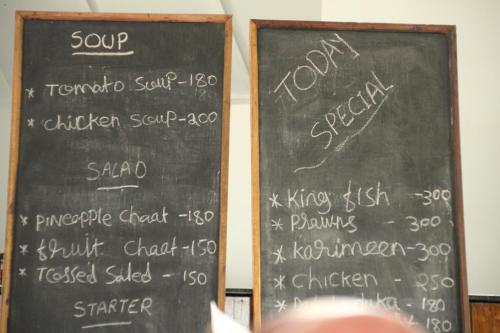 SOUP
* Tomato Soup-180
* Chicken Soup-200
SALAD
* PINEAPPLE Chaat -180
* fruit Chaat -150
* Tcossed Saled - 150
STARTER
TODAY
SPECIAL
* King fish -300
* Prawns - 300
* Karimeen-300
* CHICKEN - 250
* - 180
180